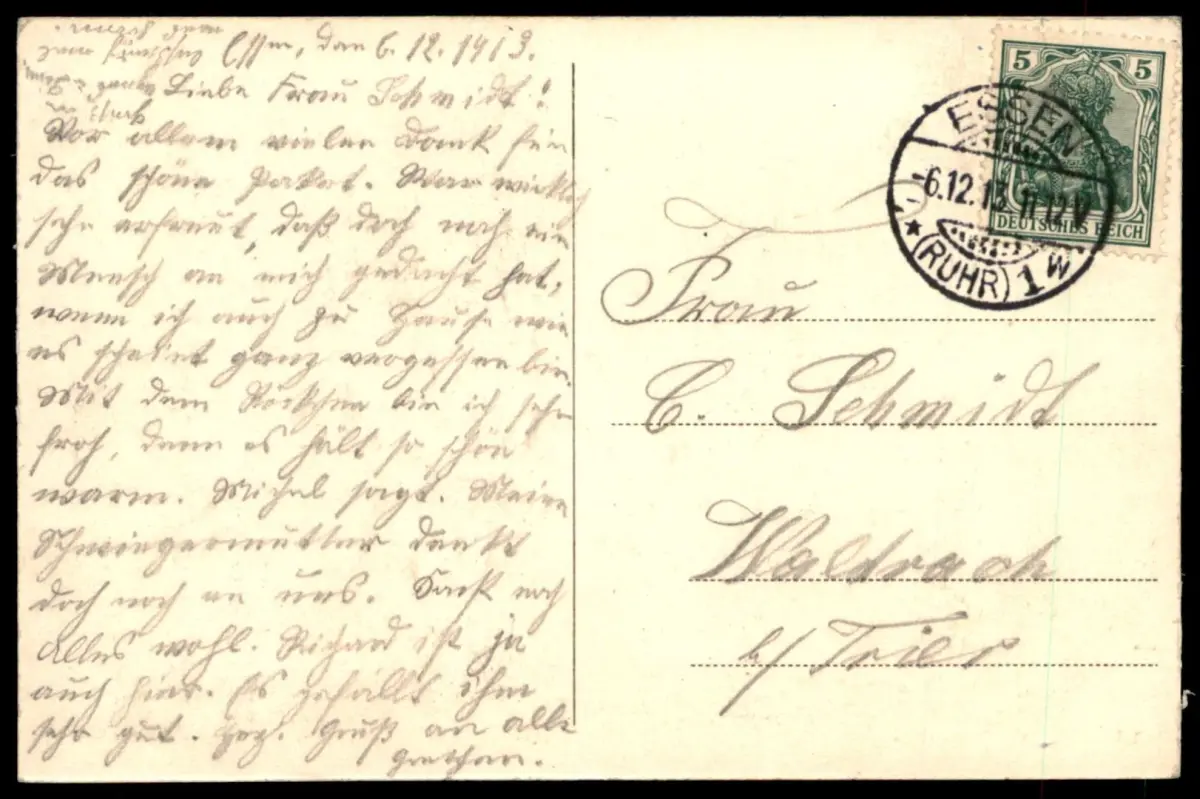 Essen, den 6. 12. 1913.
Liebe Frau Schmidt!
Vor allem vielen Dank für
das schöne Paket. War wirklich
sehr erfreut, daß doch noch ein
Mensch an mich gedacht hat,
wenn ich auch zu Hause wie
es scheint ganz vergessen bin.
Mit dem Röckchen bin ich sehr
froh, denn es hält so schön
warm. Michel sagt. Meine
Schwiegermutter denkt
doch noch an uns. Sonst noch
alles wohl. Richard ist ja
auch hier. Es gefällt ihm
sehr gut. Herz. Gruß an alle
Gretchen.
5 5
DEUTSCHES REICH
ESSEN
-6.12.13. 11-12V
★ (RUHR) 1 W
Frau
C. Schmidt
Waldrach
b/ Trier